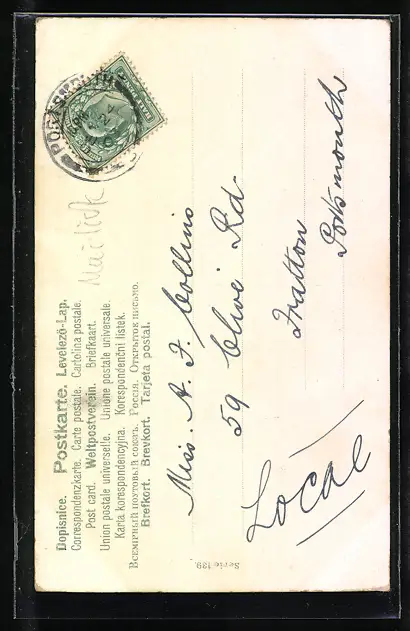 Dopisnice. Postkarte. Levelező-Lap.
Correspondenzkarte. Carte postale. Cartolina postale.
Post card. Weltpostverein. Briefkaart.
Union postale universelle. Unione postale universale.
Karta korespondencyjna. Korespondenční lístek.
Всемірный почтовый союзъ. Россія. Открытое письмо.
Brefkort. Brevkort. Tarjeta postal.
PORTSMOUTH
Miss. A. F. Collins
59 Clive Rd
Fratton
Portsmouth
Local
Serie 139.